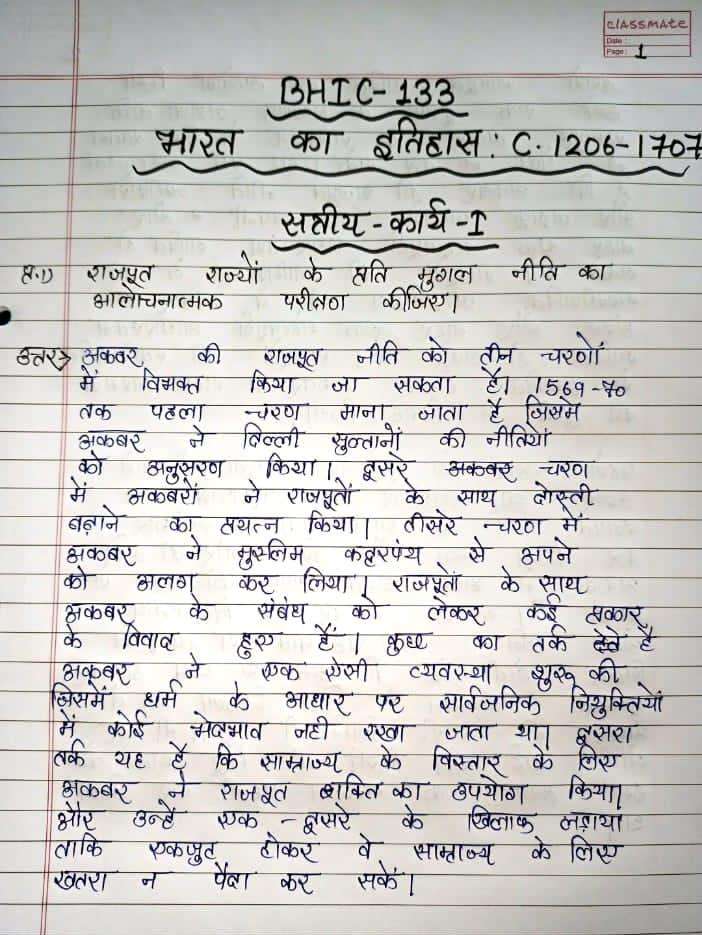 classmate
Date :
Page : 1
BHIC-133
भारत का इतिहास: C. 1206-1707
सत्रीय-कार्य-I
प्र.1) राजपूत राज्यों के प्रति मुगल नीति का
आलोचनात्मक परीक्षण कीजिए।
उत्तर→ अकबर की राजपूत नीति को तीन चरणों
में विभक्त किया जा सकता है। 1569-70
तक पहला चरण माना जाता है जिसमें
अकबर ने दिल्ली सुल्तानों की नीतियों
को अनुसरण किया। दूसरे अकबर चरण
में अकबरों ने राजपूतों के साथ दोस्ती
बढ़ाने का प्रयत्न किया। तीसरे चरण में
अकबर ने मुस्लिम कट्टरपंथ से अपने
को अलग कर लिया। राजपूतों के साथ
अकबर के संबंध को लेकर कई प्रकार
के विवाद हुए हैं। कुछ का तर्क देते है
अकबर ने एक ऐसी व्यवस्था शुरू की
जिसमें धर्म के आधार पर सार्वजनिक नियुक्तियों
में कोई भेदभाव नही रखा जाता था। दूसरा
तर्क यह है कि साम्राज्य के विस्तार के लिए
अकबर ने राजपूत शक्ति का उपयोग किया।
और उन्हें एक-दूसरे के खिलाफ लड़ाया
ताकि एकजुट होकर वे साम्राज्य के लिए
खतरा न पैदा कर सकें।